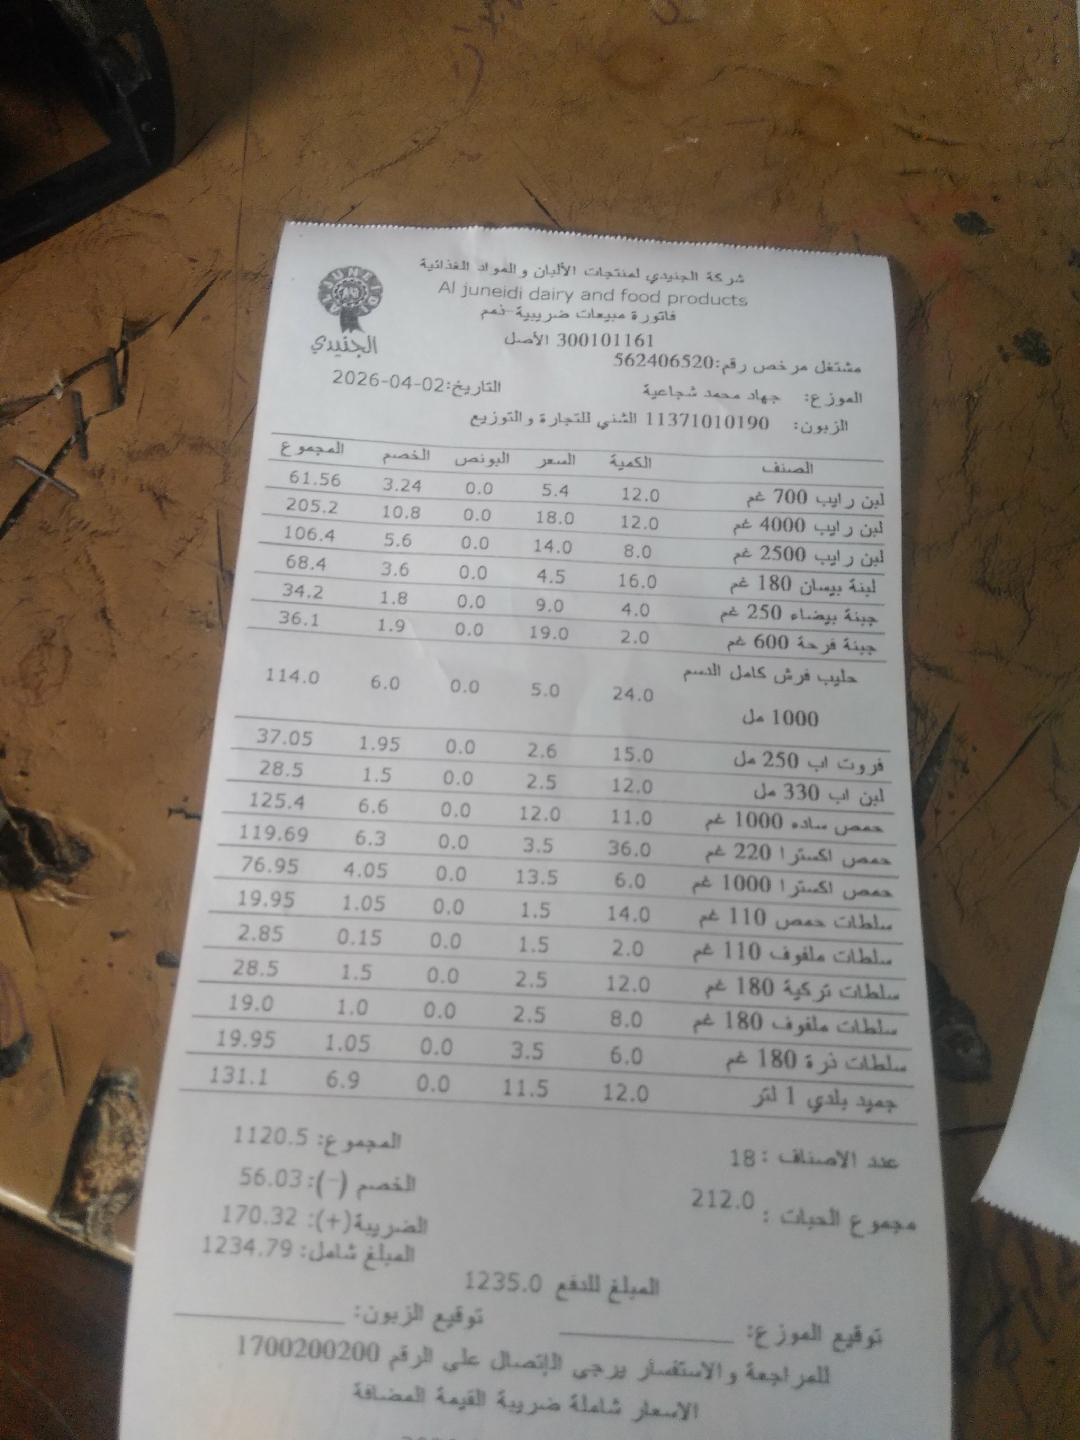 شركة الجنيدي لمنتجات الألبان والمواد الغذائية
Al juneidi dairy and food products
فاتورة مبيعات ضريبية-ذمم
300101161 الأصل
الجنيدي
مشتغل مرخص رقم:562406520
الموزع: جهاد محمد شجاعية التاريخ:2026-04-02
الزبون: 11371010190 الشني للتجارة والتوزيع
الصنف الكمية السعر البونص الخصم المجموع
لبن رايب 700 غم 12.0 5.4 0.0 3.24 61.56
لبن رايب 4000 غم 12.0 18.0 0.0 10.8 205.2
لبن رايب 2500 غم 8.0 14.0 0.0 5.6 106.4
لبنة بيسان 180 غم 16.0 4.5 0.0 3.6 68.4
جبنة بيضاء 250 غم 4.0 9.0 0.0 1.8 34.2
جبنة فرحة 600 غم 2.0 19.0 0.0 1.9 36.1
حليب فرش كامل الدسم 24.0 5.0 0.0 6.0 114.0
1000 مل
فروت اب 250 مل 15.0 2.6 0.0 1.95 37.05
لبن اب 330 مل 12.0 2.5 0.0 1.5 28.5
حمص ساده 1000 غم 11.0 12.0 0.0 6.6 125.4
حمص اكسترا 220 غم 36.0 3.5 0.0 6.3 119.69
حمص اكسترا 1000 غم 6.0 13.5 0.0 4.05 76.95
سلطات حمص 110 غم 14.0 1.5 0.0 1.05 19.95
سلطات ملفوف 110 غم 2.0 1.5 0.0 0.15 2.85
سلطات تركية 180 غم 12.0 2.5 0.0 1.5 28.5
سلطات ملفوف 180 غم 8.0 2.5 0.0 1.0 19.0
سلطات ذرة 180 غم 6.0 3.5 0.0 1.05 19.95
جميد بلدي 1 لتر 12.0 11.5 0.0 6.9 131.1
عدد الاصناف : 18 المجموع: 1120.5
مجموع الحبات : 212.0 الخصم (-): 56.03
الضريبة(+): 170.32
المبلغ شامل: 1234.79
المبلغ للدفع 1235.0
توقيع الموزع: توقيع الزبون:
للمراجعة والاستفسار يرجى الإتصال على الرقم 1700200200
الاسعار شاملة ضريبة القيمة المضافة